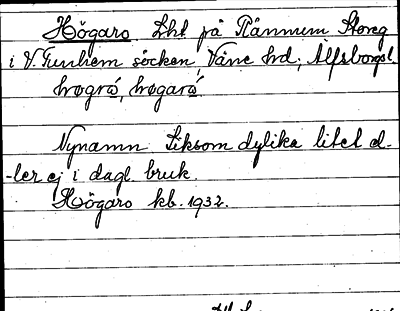 Högaro Lht på Rännum Storeg
i V. Tunhem socken, Väne hd; Älfsborgsl.
hogró, hogaró
Nynamn Liksom dylika litet el-
-ler ej i dagl. bruk.
Högaro kb. 1932.